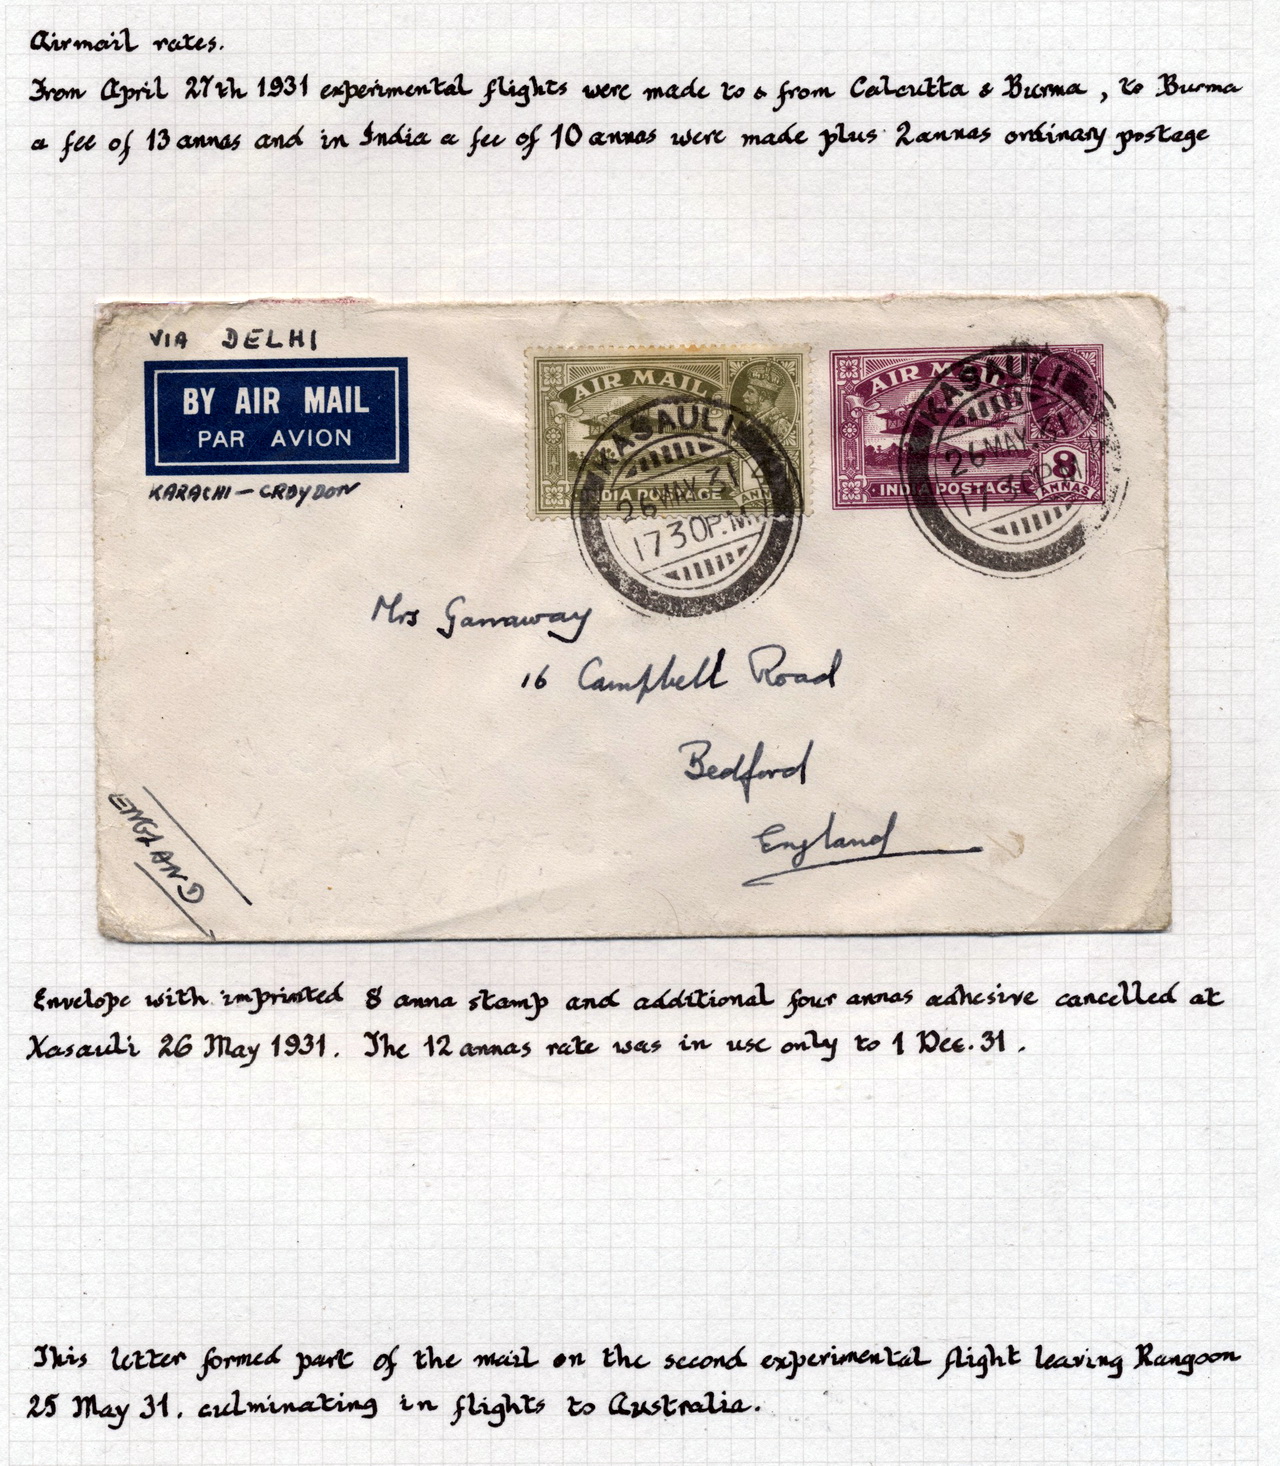 Airmail rates.
From April 27th 1931 experimental flights were made to & from Calcutta & Burma, to Burma
a fee of 13 annas and in India a fee of 10 annas were made plus 2 annas ordinary postage
VIA DELHI
BY AIR MAIL
PAR AVION
KARACHI - CROYDON
AIR MAIL
INDIA POSTAGE
KASAULI
26 MAY. 31
1730P.M.
AIR MAIL
INDIA POSTAGE
8
ANNAS
KASAULI
26 MAY. 31
Mrs Garraway
16 Campbell Road
Bedford
England
ENGLAND
Envelope with imprinted 8 anna stamp and additional four annas adhesive cancelled at
Kasauli 26 May 1931. The 12 annas rate was in use only to 1 Dec. 31.
This letter formed part of the mail on the second experimental flight leaving Rangoon
25 May 31. culminating in flights to Australia.